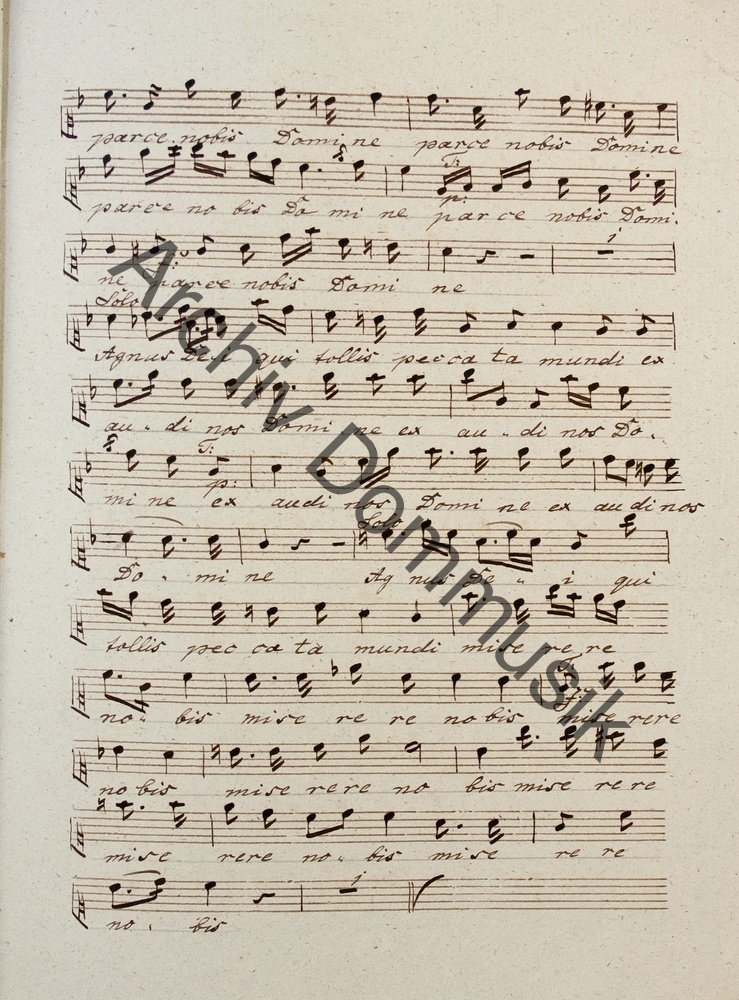 parce nobis Domine parce nobis Domine
T:
parce no bis Do mi ne par ce nobis Domi.
p:
ne parce nobis Domi ne
1
Solo
Agnus Dei qui tollis pecca ta mundi ex
au - di nos Domi ne ex au - di nos Do -
T:
p:
mi ne ex audi nos Domi ne ex audi nos
Solo
Do - mi ne Ag nus De - i qui
tollis pec ca ta mundi mise re re
no - bis mise re re nobis mise rere
no bis mise rere no bis mise re re
mise rere no - bis mi se re re
1
no - bis
Archiv Dommusik